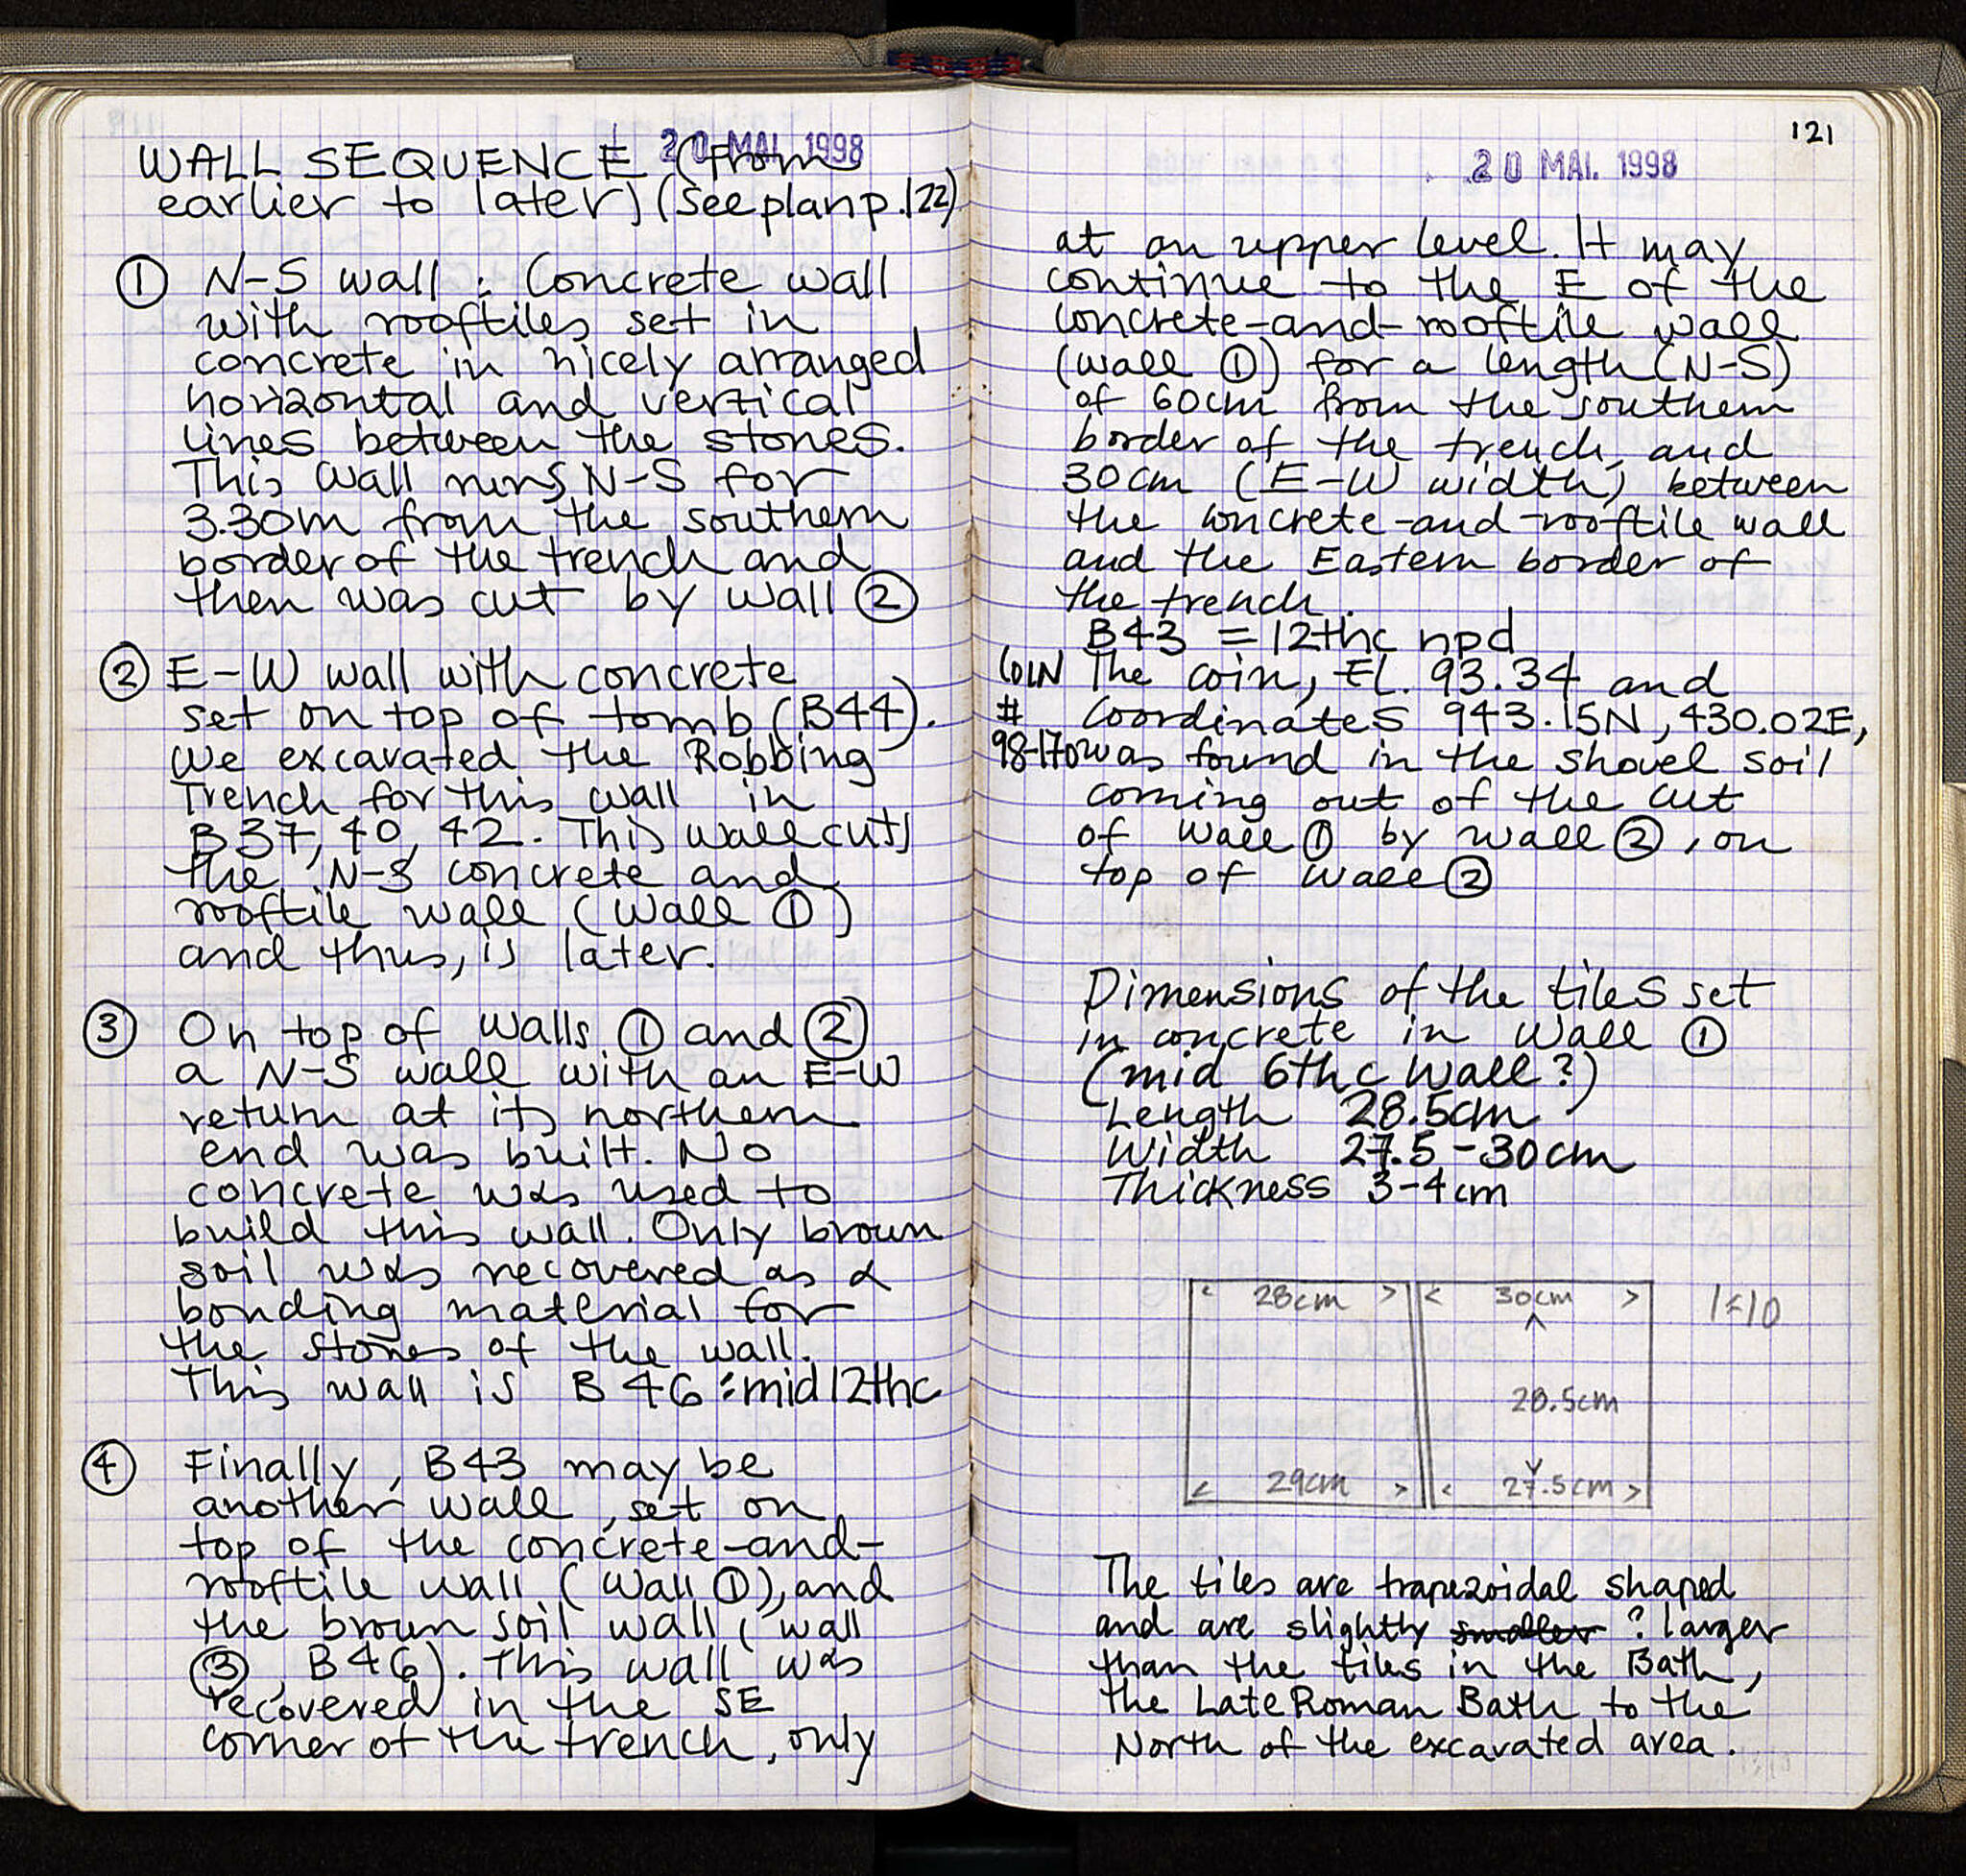 20 MAI 1998
WALL SEQUENCE (from
earlier to later) (see plan p. 122)
① N-S wall: Concrete wall
with rooftiles set in
concrete in nicely arranged
horizontal and vertical
lines between the stones.
This wall runs N-S for
3.30m from the southern
border of the trench and
then was cut by wall ②
② E-W wall with concrete
set on top of tomb (B44).
We excavated the Robbing
Trench for this wall in
B37, 40, 42. This wall cuts
the N-S concrete and
rooftile wall (wall ①)
and thus, is later.
③ On top of walls ① and ②
a N-S wall with an E-W
return at its northern
end was built. No
concrete was used to
build this wall. Only brown
soil was recovered as a
bonding material for
the stones of the wall.
This wall is B 46 : mid 12thc
④ Finally, B43 may be
another wall, set on
top of the concrete-and-
rooftile wall (wall ①), and
the brown soil wall (wall
③, B46). This wall was
recovered in the SE
corner of the trench, only
121
20 MAI. 1998
at an upper level. It may
continue to the E of the
concrete-and-rooftile wall
(wall ①) for a length (N-S)
of 60cm from the southern
border of the trench, and
30cm (E-W width) between
the concrete-and-rooftile wall
and the Eastern border of
the trench.
B43 = 12thc npd
COIN The coin, EL. 93.34 and
# Coordinates 943.15N, 430.02E,
98-170 was found in the shovel soil
coming out of the cut
of wall ① by wall ②, on
top of wall ②
Dimensions of the tiles set
in concrete in Wall ①
(mid 6thc Wall?)
Length 28.5cm
Width 27.5-30cm
Thickness 3-4cm
< 28cm > < 30cm > 1:10
28.5cm
< 29cm > < 27.5cm >
The tiles are trapezoidal shaped
and are slightly smaller ? larger
than the tiles in the Bath,
the Late Roman Bath to the
North of the excavated area.